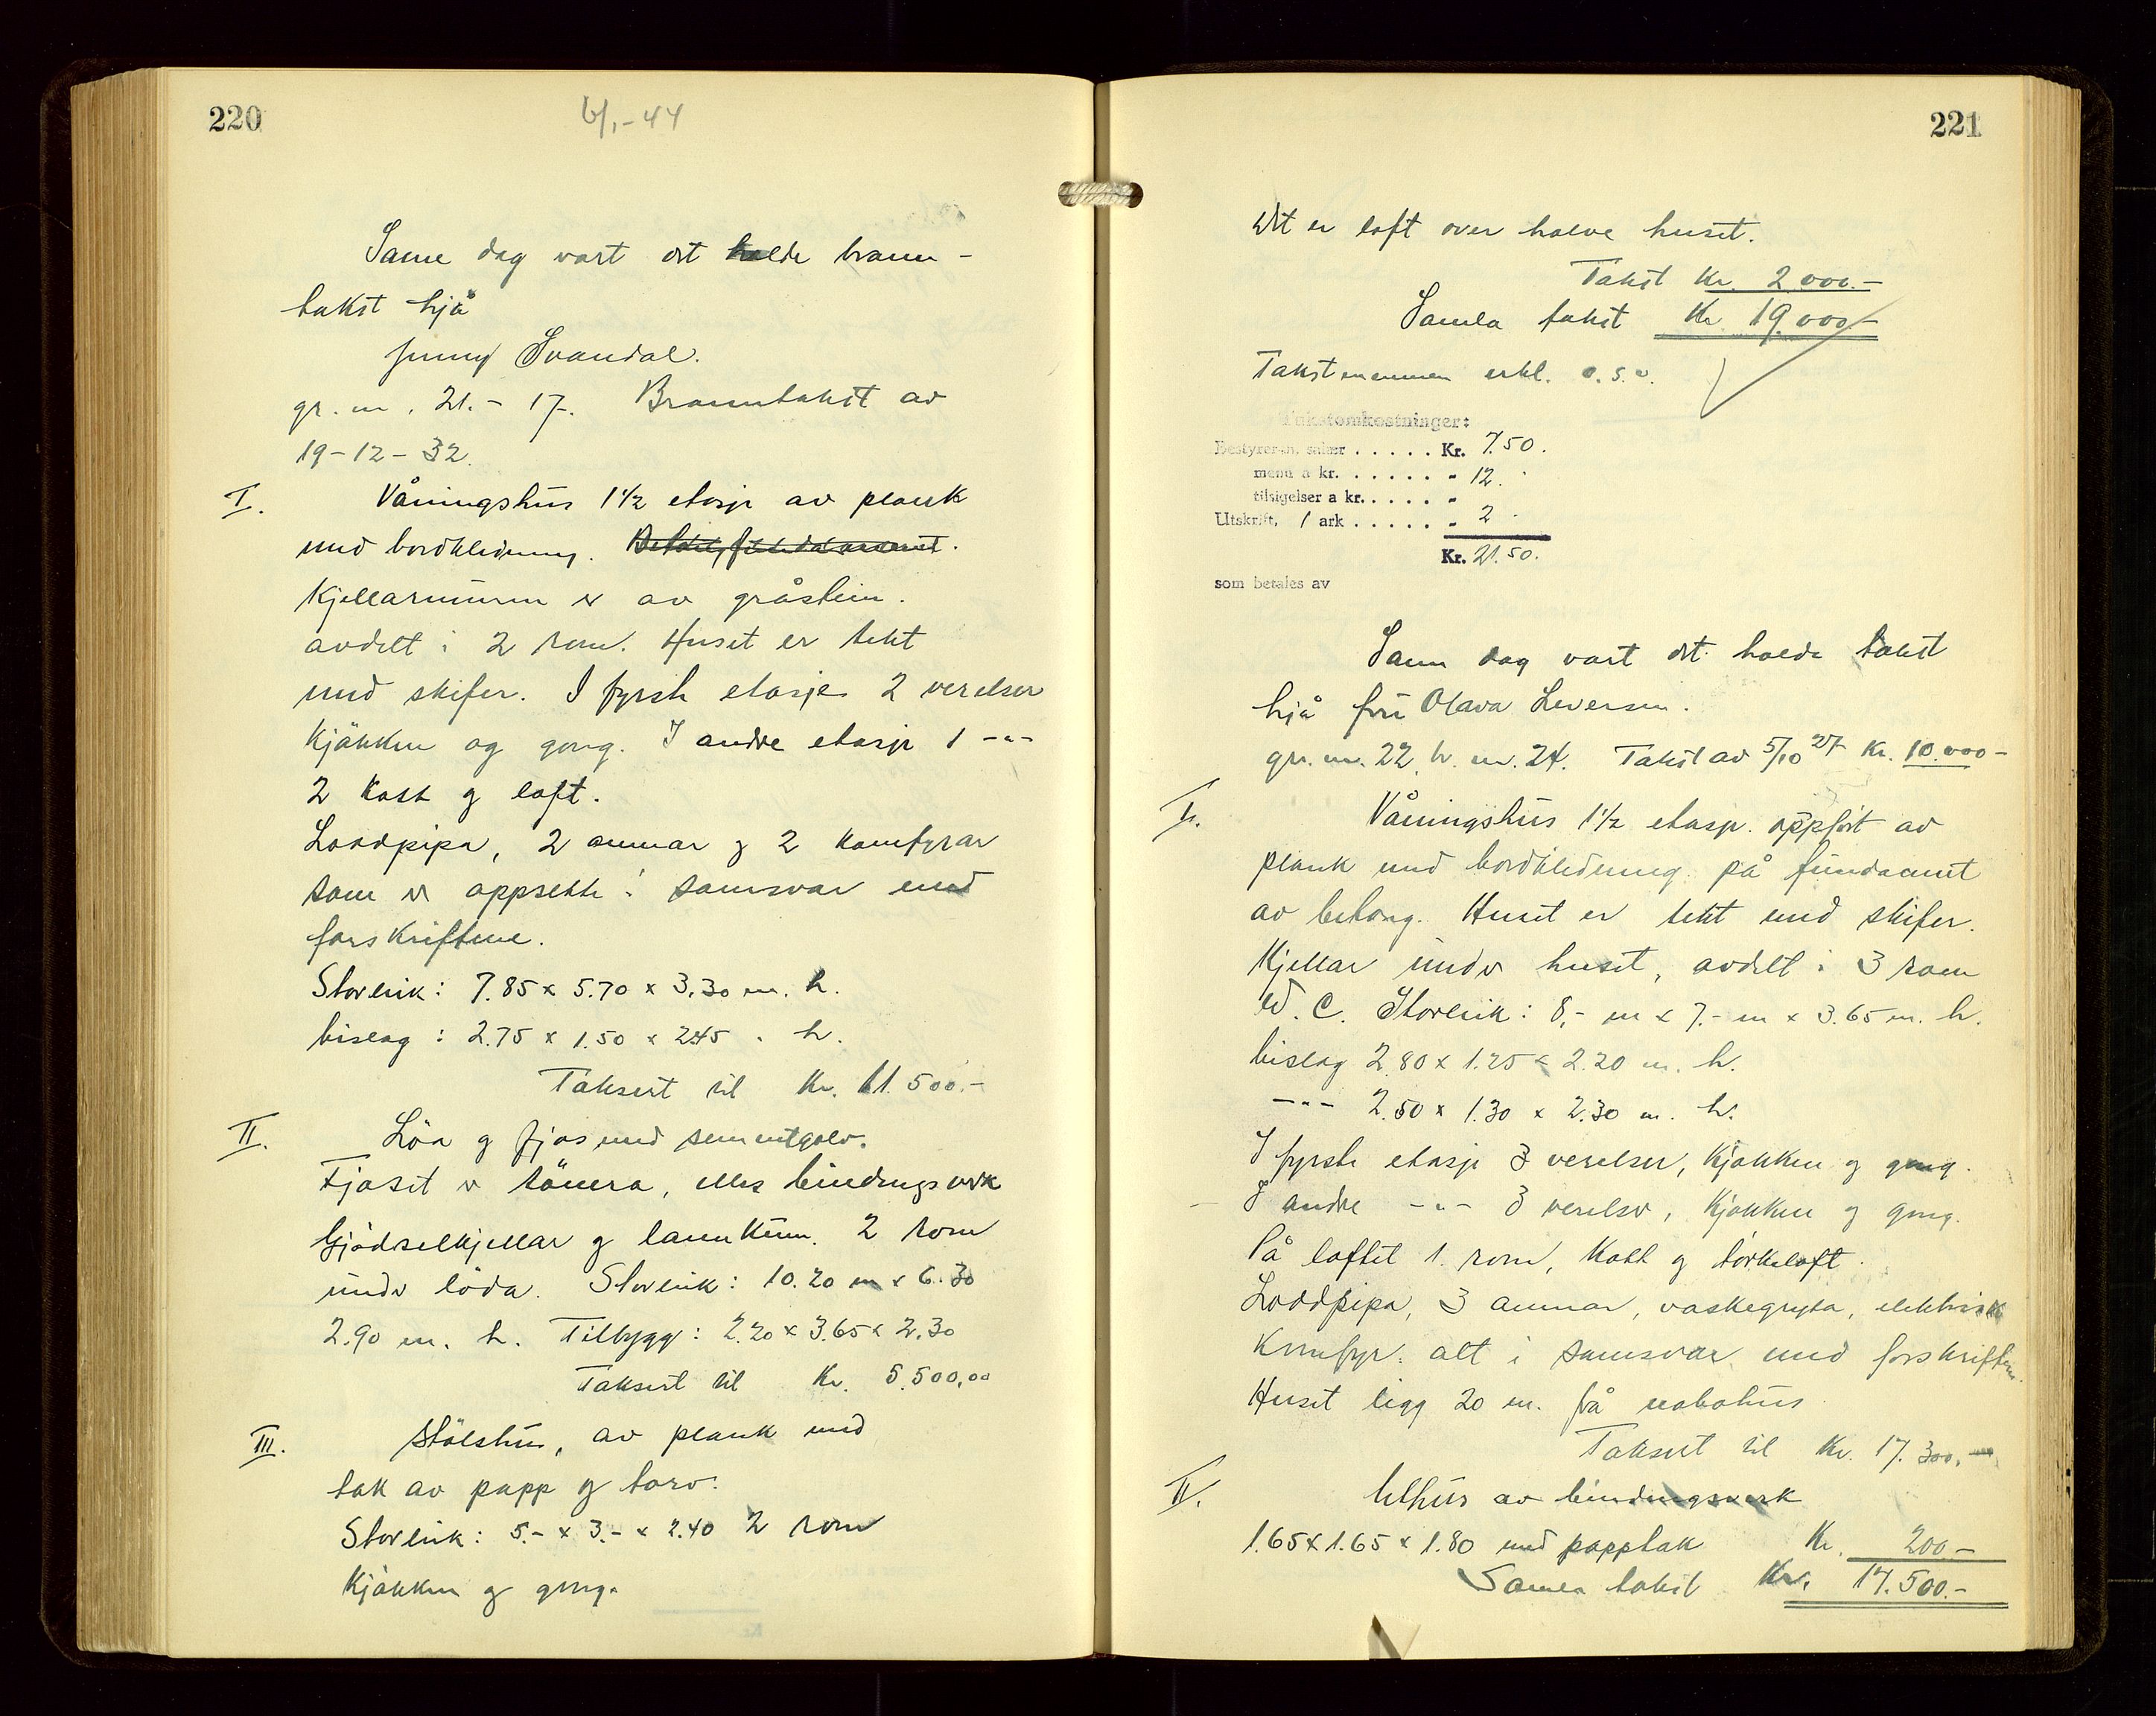 220
6/1-44
Same dag vart det halde brann-
takst hjå
Jenny Svandal.
gr. nr. 21.- 17. Branntakst av
19-12-32.
I. Våningshus 1 1/2 etasje av plank
med bordkledning. Betong fundament.
Kjellarmuren er av gråstein.
avdelt i 2 rom. Huset er tekt
med skifer. I fyrste etasje 2 verelser
Kjökken og gong. I andre etasje 1 -"-
2 kott og loft.
Loddpipa, 2 omnar og 2 komfyrar
som er oppsette i samsvar med
forskriftene.
Storleik: 7.85 x 5.70 x 3.30 m. h.
bislag: 2.75 x 1.50 x 2.45 " h.
Taksert til Kr. 11.500.-
II. Löa og fjos med sementgolv.
Fjoset er tömra, elles bindingsverk
Gjödselkjellar og landkum. 2 rom
under löda. Storleik: 10.20 m x 6.30
2.90 m. h. Tilbygg: 2.20 x 3.65 x 2.30
Taksert til Kr. 5.500,00
III. Stölshus, av plank med
tak av papp og torv.
Storleik: 5.- x 3.- x 2.40 2 rom
Kjökken og gong.
221
Det er loft over halve huset.
Takst Kr. 2.000.-
Samla takst Kr 19.000.-
Takstmennene erkl. o.s.v.
Takstomkostninger:
Bestyreren, salær ..... Kr. 7.50.
menn a kr. ...... " 12.-
tilsigelser a kr. ..... "
Utskrift, 1 ark ...... " 2.-
Kr. 21.50.
som betales av
Same dag vart det halde takst
hjå fru Olava Seversen.
gr. nr. 22 br. nr. 24. Takst av 5/10 27 Kr. 10.000-
I. Våningshus 1 1/2 etasje. oppfört av
plank med bordkledning på fundament
av betong. Huset er tekt med skifer.
Kjellar under huset, avdelt i 3 rom
W.C. Storleik: 8,- m x 7.- m x 3.65 m. h.
bislag 2.80 x 1.25 x 2.20 m. h.
-"- 2.50 x 1.30 x 2.30 m. h.
I fyrste etasje 3 verelser, Kjökken og gong.
- I andre -"- 3 verelser, Kjökken og gong.
På loftet 1. rom, Kott og törkeloft.
Loddpipa, 3 omnar, vaskegryta, elektrisk
Komfyr. alt i samsvar med forskriftene.
Huset ligg 20 m. frå nabohus
Taksert til Kr. 17.300.-
II. Uthus av bindingsverk
1.65 x 1.65 x 1.80 med papptak Kr. 200.-
Samla takst Kr. 17.500.-